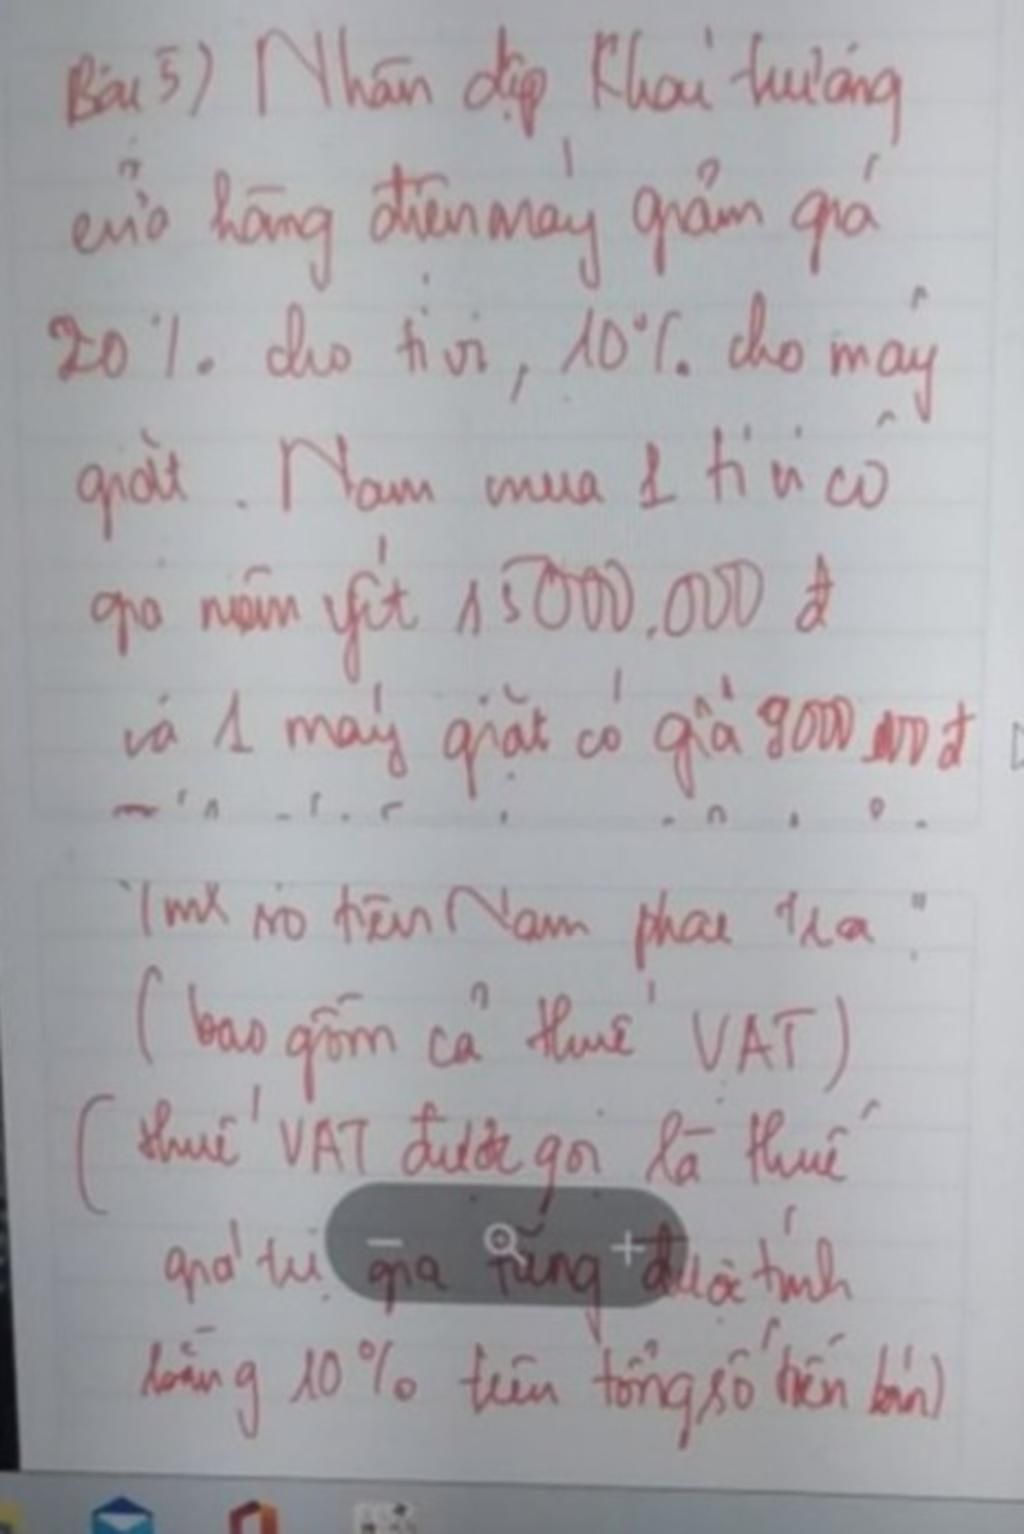 Bài 5) Nhân dịp khai trương
cửa hàng điện máy giảm giá
20% cho ti vi, 10% cho máy
giặt. Nam mua 1 ti vi có
giá niêm yết 15000.000 đ
và 1 máy giặt có giá 9000.000 đ
Tính số tiền Nam phải trả
(bao gồm cả thuế VAT)
(thuế VAT được gọi là thuế
giá trị gia tăng được tính
bằng 10% trên tổng số tiền bán)